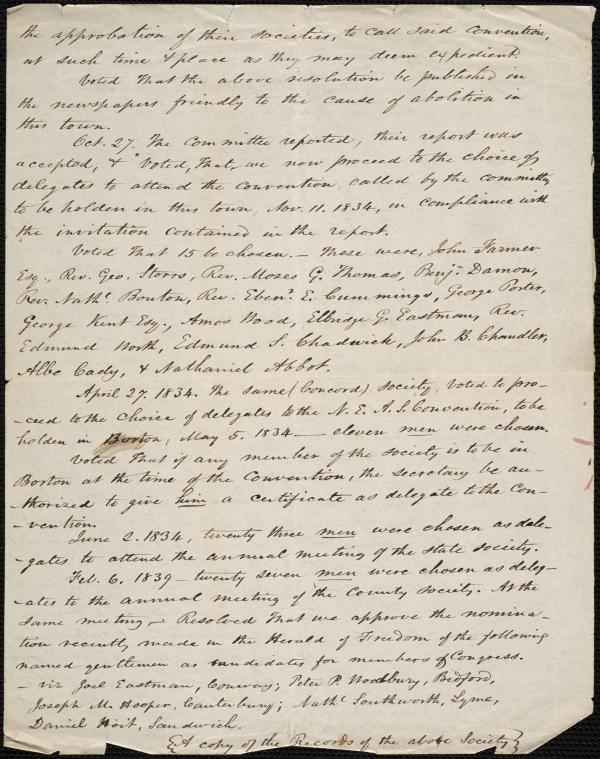 the approbation of their societies, to call said convention,
at such time & place as they may deem expedient.
Voted that the above resolution be published in
the newspapers friendly to the cause of abolition in
this town.
Oct. 27. The committee reported, their report was
accepted, & Voted, that, we now proceed to the choice of
delegates to attend the convention, called by the committee,
to be holden in this town, Nov. 11. 1834, in compliance with
the invitation contained in the report.
Voted that 15 be chosen. – These were, John Farmer
Esq., Rev. Geo. Storrs, Rev. Moses G. Thomas, Benj. Damon,
Rev. Nathl. Bouton, Rev. Ebenr. E. Cummings, George Porter,
George Kent Esq., Amos Wood, Elbridge G. Eastman, Rev.
Edmund Worth, Edmund S. Chadwick, John B. Chandler,
Albe Cady, & Nathaniel Abbot.
April 27. 1834. The same (Concord) society, voted to pro-
-ceed to the choice of delegates to the N. E. A. S. Convention, to be
holden in Boston, May 5. 1834 — eleven men were chosen.
Voted that if any member of the society is to be in
Boston at the time of the Convention, the secretary be au-
-thorized to give him a certificate as delegate to the Con-
-vention.
June 2. 1834, twenty three men were chosen as dele-
-gates to attend the annual meeting of the state society.
Feb. 6. 1839 – twenty seven men were chosen as deleg-
-ates to the annual meeting of the County society. At the
same meeting, – Resolved that we approve the nomina-
tion recently made in the Herald of Freedom of the following
named gentlemen as candidates for members of Congress.
– viz Joel Eastman, Conway; Peter P. Woodbury, Bedford,
Joseph M. Hooper, Canterbury; Nathl. Southworth, Lyme,
Daniel Hoit, Sandwich.
{A copy of the Records of the above Society}